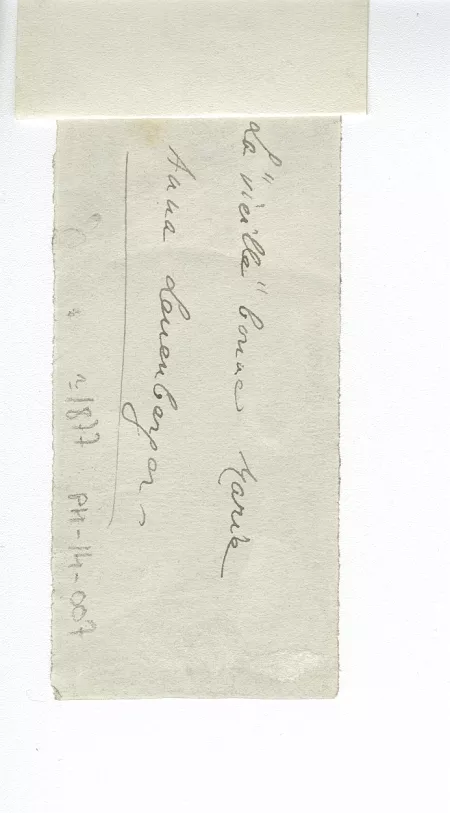 La "vieille" bonne Marie
Anna Leuenberger
~1877 PH-14-007